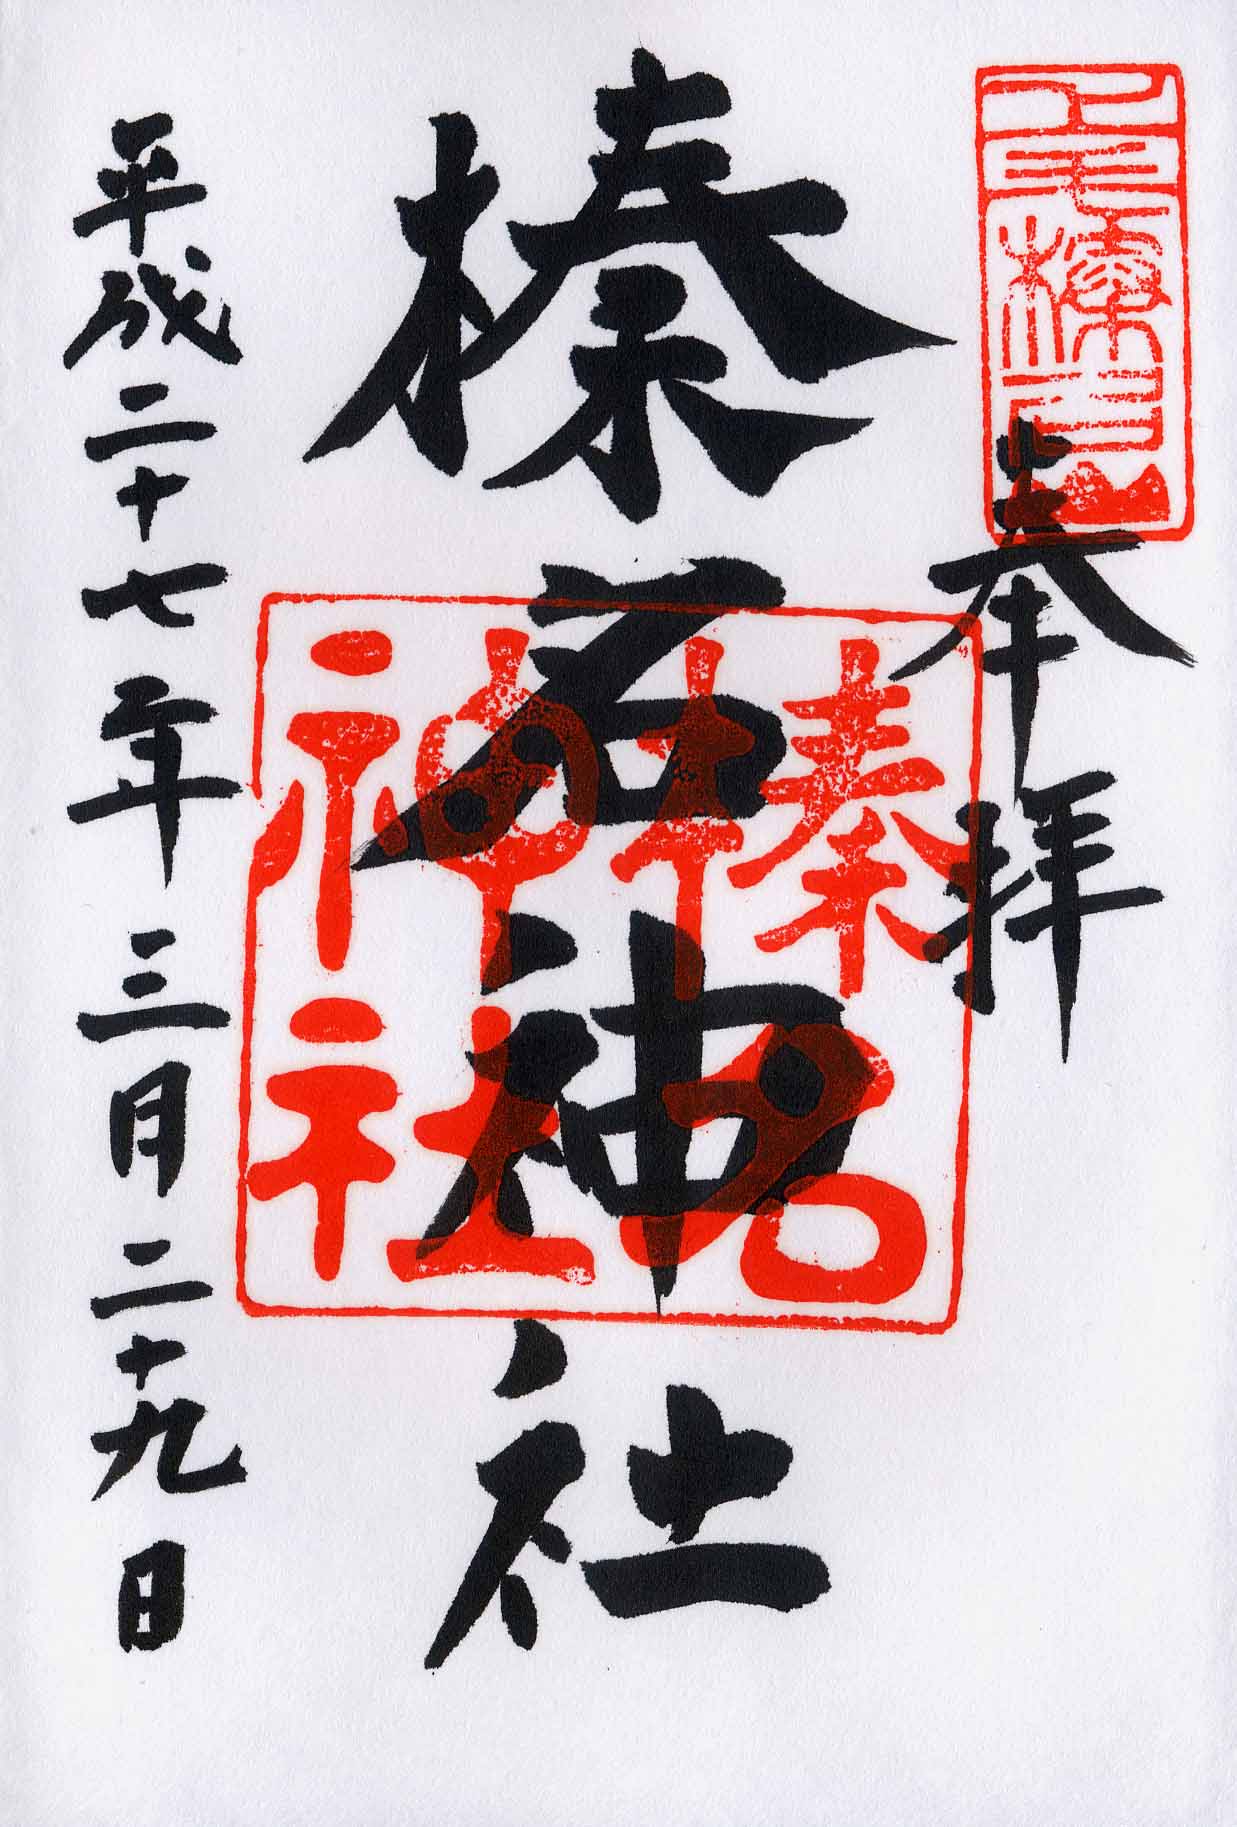 上毛榛名山
奉拝
榛名神社
榛名
神社
平成二十七年三月二十九日